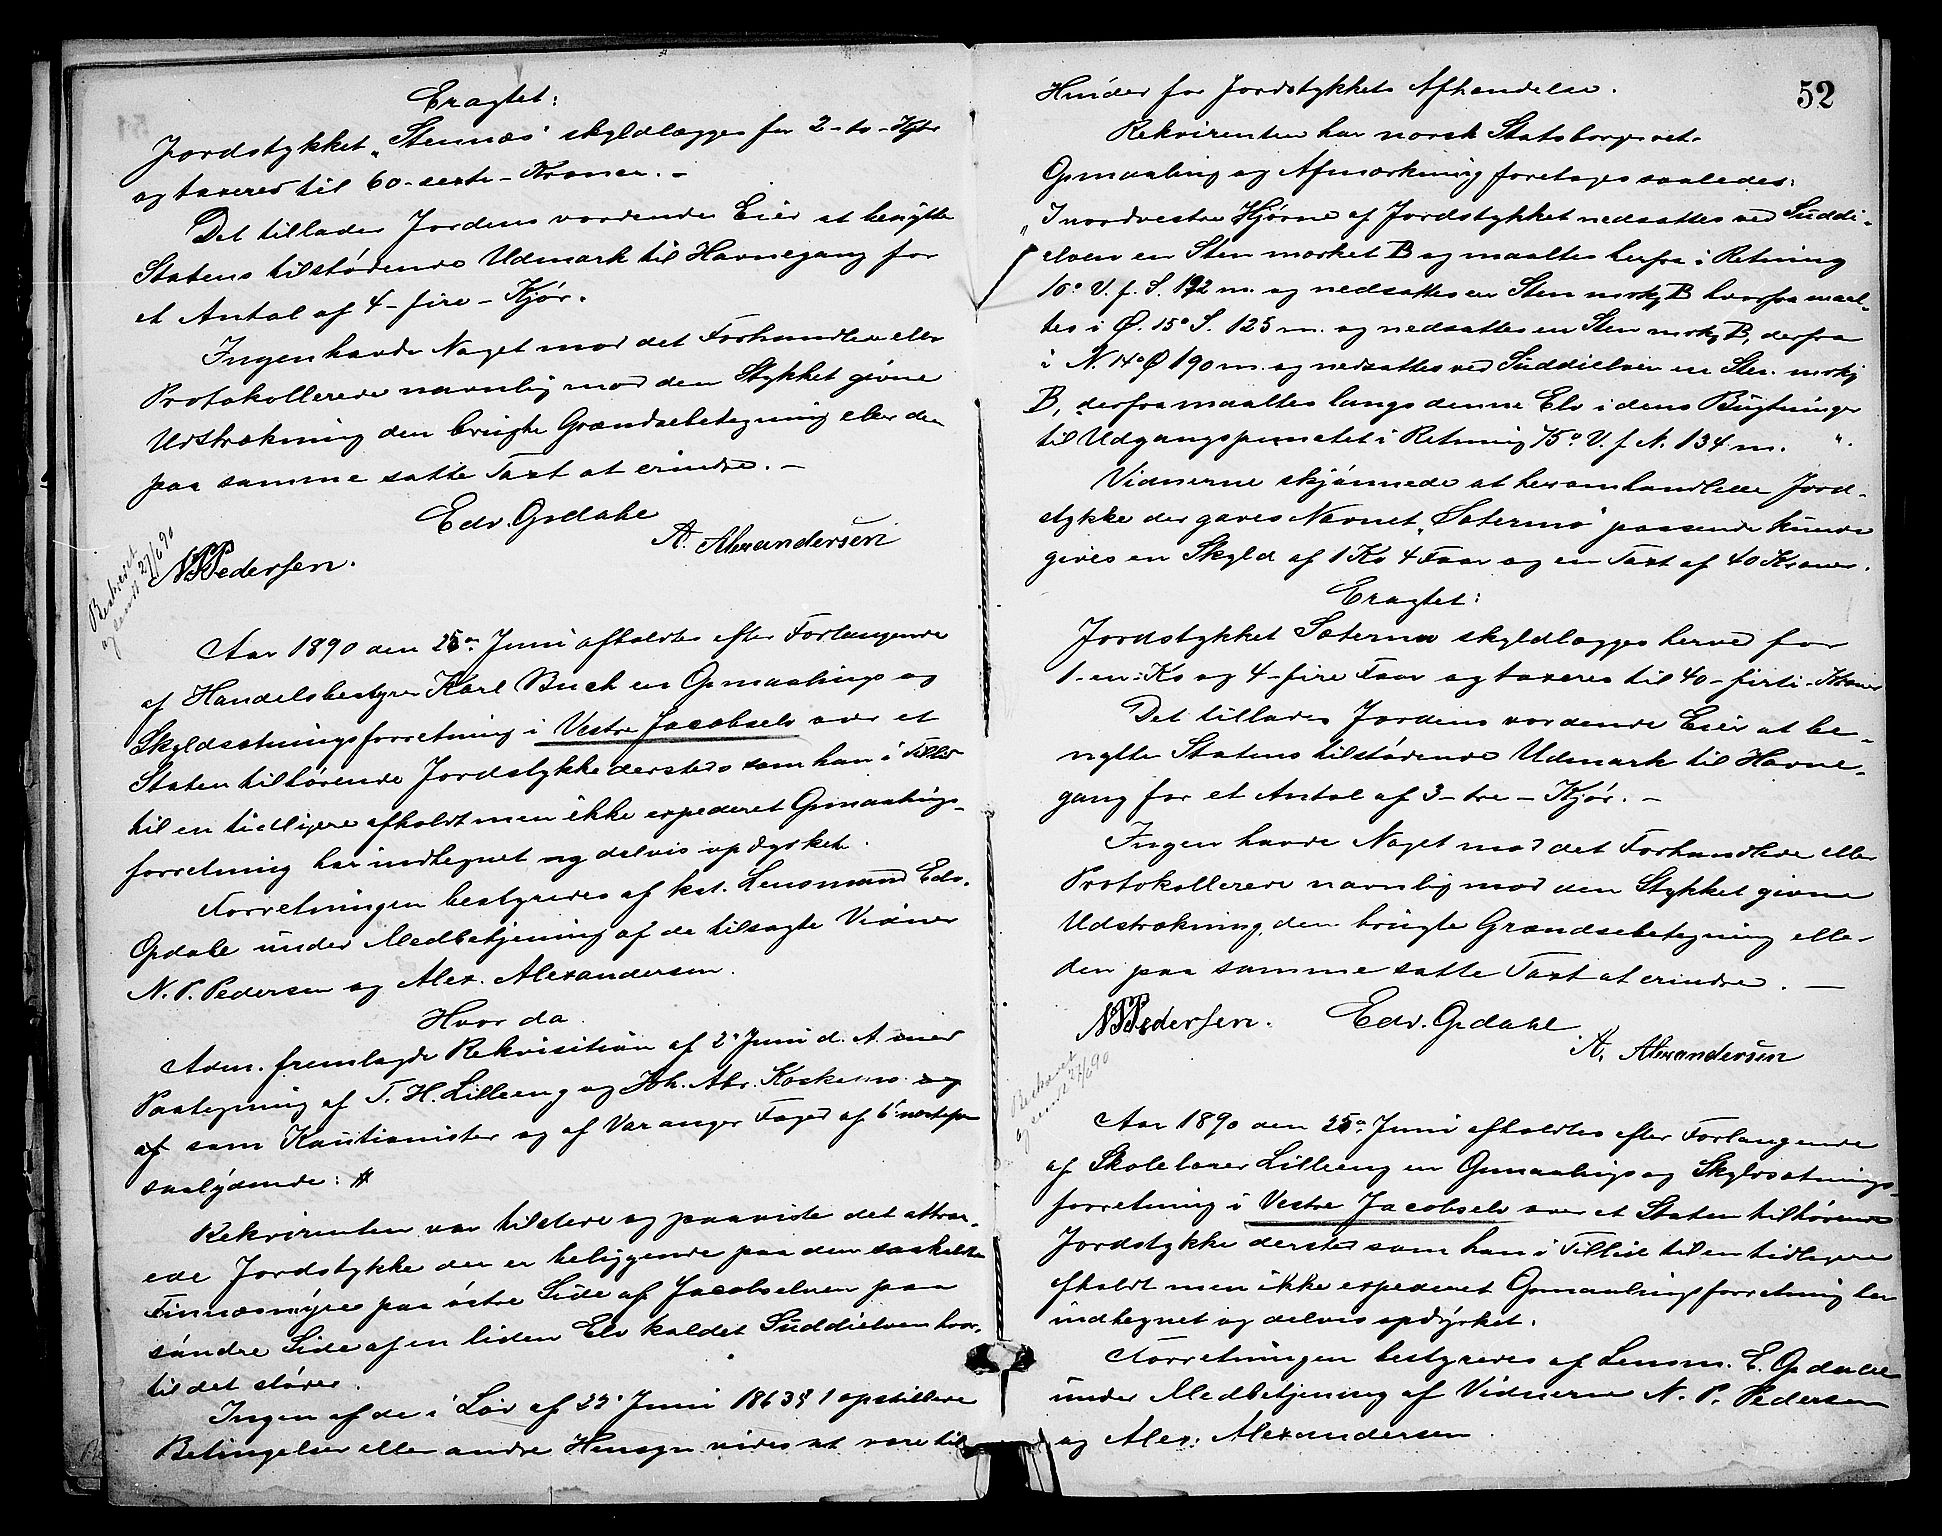 Eragtet:
Jordstykket „Stennæs" skyldlægges for 2-to-Kjør
og taxeres til 60-sexti-Kroner. -
Det tillades Jordens vordende Eier at benytte
Statens tilstødende Udmark til Havnegang for
et Antal af 4-fire-Kjør.
Ingen havde Noget mod det Forhandlede eller
Protokollerede navnlig mod den Stykket givne
Udstrækning den brugte Grændsebetegning eller den
paa samme satte Taxt at erindre. -
Edv. Opdahl
A. Alexandersen
N P Pedersen.
Beskrevet
og sendt 27/6 90
Aar 1890 den 25de Juni afholdtes efter Forlangende
af Handelsbestyrer Karl Buch en Opmaalings og
Skyldsætningsforretning i Vestre Jacobselv over et
Staten tilhørende Jordstykke dersteds som han i Tillid
til en tidligere afholdt men ikke expederet Opmaalings-
forretning har indhegnet og delvis opdyrket.
Forretningen bestyredes af kst. Lensmand Edv.
Opdahl under Medbetjening af de tilsagte Vidner
N. P. Pedersen og Alex. Alexandersen.
Hvor da
Adm. fremlagde Rekvisition af 2' Juni d. A. med
Paategning af T. H. Lilleeng og Joh. Abr. Koskemo og
af som Kautionister og af Varanger Foged af 6' næstefør
saalydende: #
Rekvirenten var tilstede og paaviste det attraa-
ede Jordstykke der er beliggende paa den saakaldte
Finnæsmyre paa østre Side af Jacobselven paa
søndre Side af en liden Elv kaldet Suddielven hvor-
til det støder.
Ingen af de i Lov af 22' Juni 1863 § 1 opstillede
Betingelser eller andre Hensyn vides at være til
52
Hinder for Jordstykkets Afhændelse.
Rekvirenten har norsk Statsborgerret.
Opmaaling og Afmærkning foretages saaledes:
„I nordvestre Hjørne af Jordstykket nedsattes ved Suddi-
elven en Sten mærket B og maaltes herfra i Retning
10° V. f. S. 192 m. og nedsattes en Sten mærkt B hvorfra maal-
tes i Ø. 15° S. 125 m. og nedsattes en Sten mærkt B, derfra
i N. 14° Ø 190 m. og nedsattes ved Suddielven en Sten mærkt
B, derfra maaltes langs denne Elv i dens Bugtninger
til Udgangspunctet i Retning 75° V. f. N. 134 m. ".
Vidnerne skjønnede at heromhandlede Jord-
stykke der gaves Navnet „Sætermo" passende kunde
gives en Skyld af 1 Ko 4 Faar og en Taxt af 40 Kroner.
Eragtet:
Jordstykket Sætermo skyldlægges herved for
1-en-Ko og 4-fire Faar og taxeres til 40-firti-Kroner
Det tillades Jordens vordende Eier at be-
nytte Statens tilstødende Udmark til Havne-
gang for et Antal af 3-tre-Kjør. -
Ingen havde Noget mod det Forhandlede eller
Protokollerede navnlig mod den Stykket givne
Udstrækning, den brugte Grændsebetegning eller
den paa samme satte Taxt at erindre. -
N P Pedersen. Edv. Opdahl
A. Alexandersen
Beskrevet
og sendt 27/6 90
Aar 1890 den 25de Juni afholdtes efter Forlangende
af Skolelærer Lilleeng en Opmaalings og Skyldsætnings-
forretning i Vestre Jacobselv over et Staten tilhørende
Jordstykke dersteds som han i Tillid til en tidligere
afholdt men ikke expederet Opmaalingsforretning har
indhegnet og delvis opdyrket.
Forretningen bestyredes af Lensm. E. Opdahl
under Medbetjening af Vidnerne N. P. Pedersen
og Alex. Alexandersen